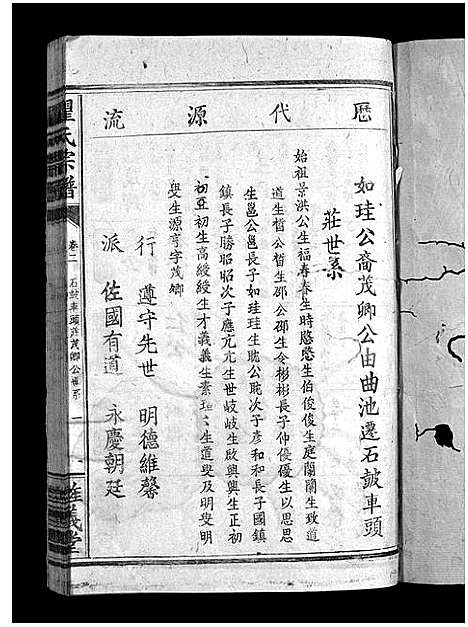 歷代源流
如珪公裔茂卿公由曲池遷石皷車頭
莊世系
始祖景洪公生福春春生時愍愍生伯俊俊生庭蘭蘭生致道
道生晳公晳生邵公邵生令彬彬長子仲優優生以思思
生邕公邕長子如珪珪生胧公胧次子彥和和長子國鎮
鎮長子勝昭昭次子應亢亢生世岐岐生啟興興生正初
初亞初生高綬綬生才義義生素 生道 及明
生源亨字茂卿
行 遵守先世 明德維馨
派 佐國有道 永慶朝廷
瞿氏宗譜
卷二 石皷車頭莊茂卿公世系 一
義堂